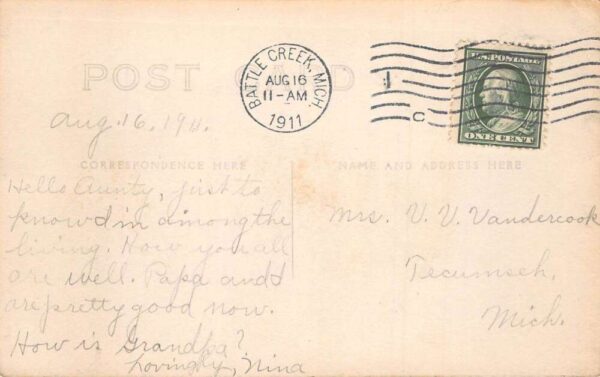 POST CARD
BATTLE CREEK, MICH.
AUG 16
11-AM
1911
1
C
U.S. POSTAGE
ONE CENT
Aug. 16, 1911.
CORRESPONDENCE HERE
NAME AND ADDRESS HERE
Hello Aunty, just to
know I'm among the
living. How you all
are well. Papa and I
are pretty good now.
How is Grandpa?
Lovingly, Nina
Mrs. V. V. Vandercook
Tecumseh,
Mich.